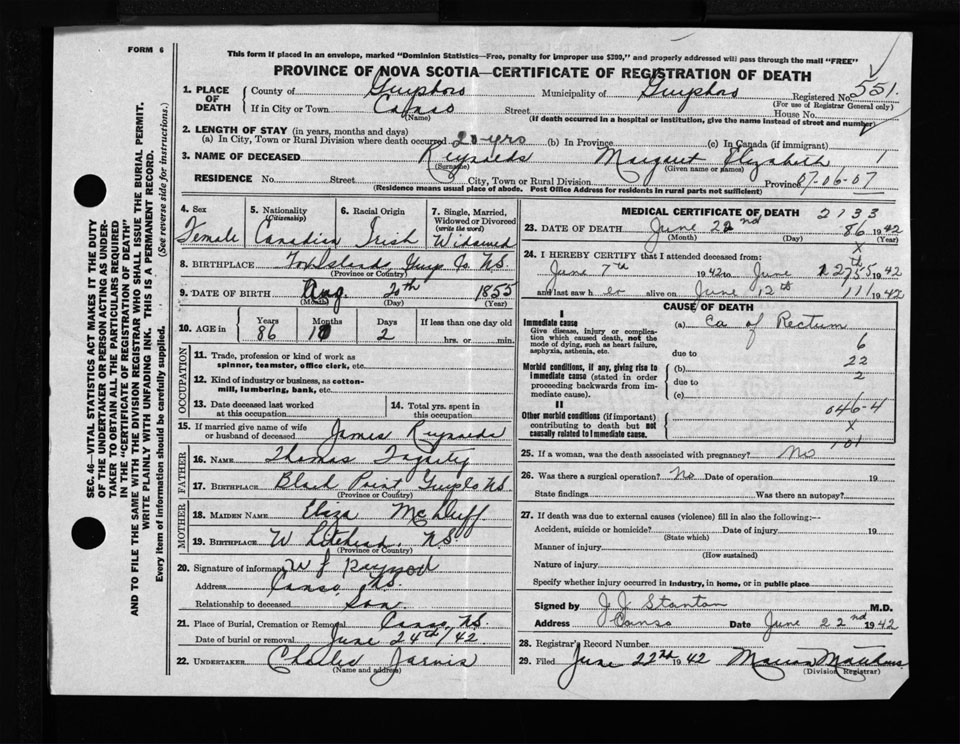 FORM 6
This form if placed in an envelope, marked "Dominion Statistics—Free, penalty for improper use $300," and properly addressed will pass through the mail "FREE"
PROVINCE OF NOVA SCOTIA—CERTIFICATE OF REGISTRATION OF DEATH
SEC. 46—VITAL STATISTICS ACT MAKES IT THE DUTY
OF THE UNDERTAKER OR PERSON ACTING AS UNDER-
TAKER TO OBTAIN ALL THE PARTICULARS REQUIRED
IN THE "CERTIFICATE OF REGISTRATION OF DEATH"
AND TO FILE THE SAME WITH THE DIVISION REGISTRAR WHO SHALL ISSUE THE BURIAL PERMIT.
WRITE PLAINLY WITH UNFADING INK. THIS IS A PERMANENT RECORD.
Every item of information should be carefully supplied. (See reverse side for instructions.)
1. PLACE OF DEATH
County of Guysboro Municipality of Guysboro Registered No. 551
(For use of Registrar General only)
If in City or Town Canso Street House No.
(Name) (If death occurred in a hospital or institution, give the name instead of street and number)
2. LENGTH OF STAY (in years, months and days)
(a) In City, Town or Rural Division where death occurred 20 yrs (b) In Province (c) In Canada (if immigrant)
3. NAME OF DECEASED Reynolds Margaret Elizabeth 1
(Surname) (Given name or names)
RESIDENCE No. Street City, Town or Rural Division Province 07-06-07
(Residence means usual place of abode. Post Office Address for residents in rural parts not sufficient)
4. Sex Female
5. Nationality (Citizenship) Canadian
6. Racial Origin Irish
7. Single, Married, Widowed or Divorced (write the word) Widowed
8. BIRTHPLACE Fox Islands Guys Co. N.S.
(Province or Country)
9. DATE OF BIRTH Aug. 20th 1855
(Month) (Day) (Year)
10. AGE in Years 86 Months 10 Days 2 If less than one day old hrs. or min.
OCCUPATION
11. Trade, profession or kind of work as spinner, teamster, office clerk, etc.
12. Kind of industry or business, as cotton-mill, lumbering, bank, etc.
13. Date deceased last worked at this occupation
14. Total yrs. spent in this occupation
15. If married give name of wife or husband of deceased James Reynolds
FATHER
16. NAME Thomas Fogarty
17. BIRTHPLACE Black Point Guys Co N.S.
(Province or Country)
MOTHER
18. MAIDEN NAME Eliza McDuff
19. BIRTHPLACE W N.S.
(Province or Country)
20. Signature of informant W J
Address Canso N.S.
Relationship to deceased Son.
21. Place of Burial, Cremation or Removal Canso, N.S.
Date of burial or removal June 24th/42
22. UNDERTAKER Charles Jarvis
(Name and address)
MEDICAL CERTIFICATE OF DEATH 2133
23. DATE OF DEATH June 22nd 86 1942
(Month) (Day) (Year)
X
24. I HEREBY CERTIFY that I attended deceased from:
June 7th 1942 to June 1942
and last saw h er alive on June 12th 111 1942
CAUSE OF DEATH
I
Immediate cause
Give disease, injury or complication which caused death, not the mode of dying, such as heart failure, asphyxia, asthenia, etc.
(a) Ca of Rectum
6
due to
22
Morbid conditions, if any, giving rise to immediate cause (stated in order proceeding backwards from immediate cause).
(b) 2
due to
(c)
046-4
II
Other morbid conditions (if important) contributing to death but not causally related to immediate cause.
X
101
25. If a woman, was the death associated with pregnancy? No
26. Was there a surgical operation? No Date of operation 19
State findings Was there an autopsy?
27. If death was due to external causes (violence) fill in also the following:—
Accident, suicide or homicide? Date of injury 19
(State which)
Manner of injury
(How sustained)
Nature of injury
Specify whether injury occurred in industry, in home, or in public place
Signed by J. J. Stanton M.D.
Address Canso Date June 22nd 1942
28. Registrar's Record Number
29. Filed June 22nd 1942 Marion
(Division Registrar)